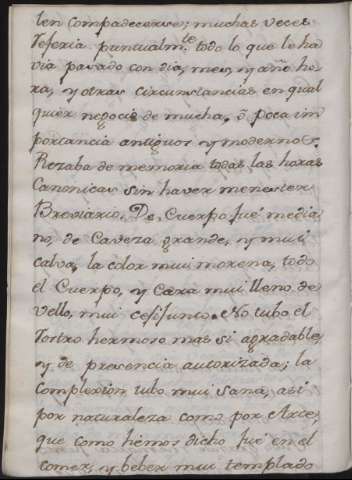 len compadecerse; muchas veces
referia puntualm.te todo lo que le ha
via pasado con dia, mes, y año ho
ra, y otras circunstancias en qual
quier negocio de mucha, ó poca im
portancia antiguos y modernos.
Rezaba de memoria todas las horas
Canonicas sin haver menester
Breviario. De Cuerpo fué media
no, de Caveza grande, y mui
calva, la color mui morena, todo
el Cuerpo, y Cara mui lleno de
vello, mui cejijunto. No tubo el
rostro hermoso mas si agradable,
y de presencia autorizada; la
complexion tubo mui sana, asi
por naturaleza como por Arte,
que como hémos dicho fué en el
comer, y beber mui templado